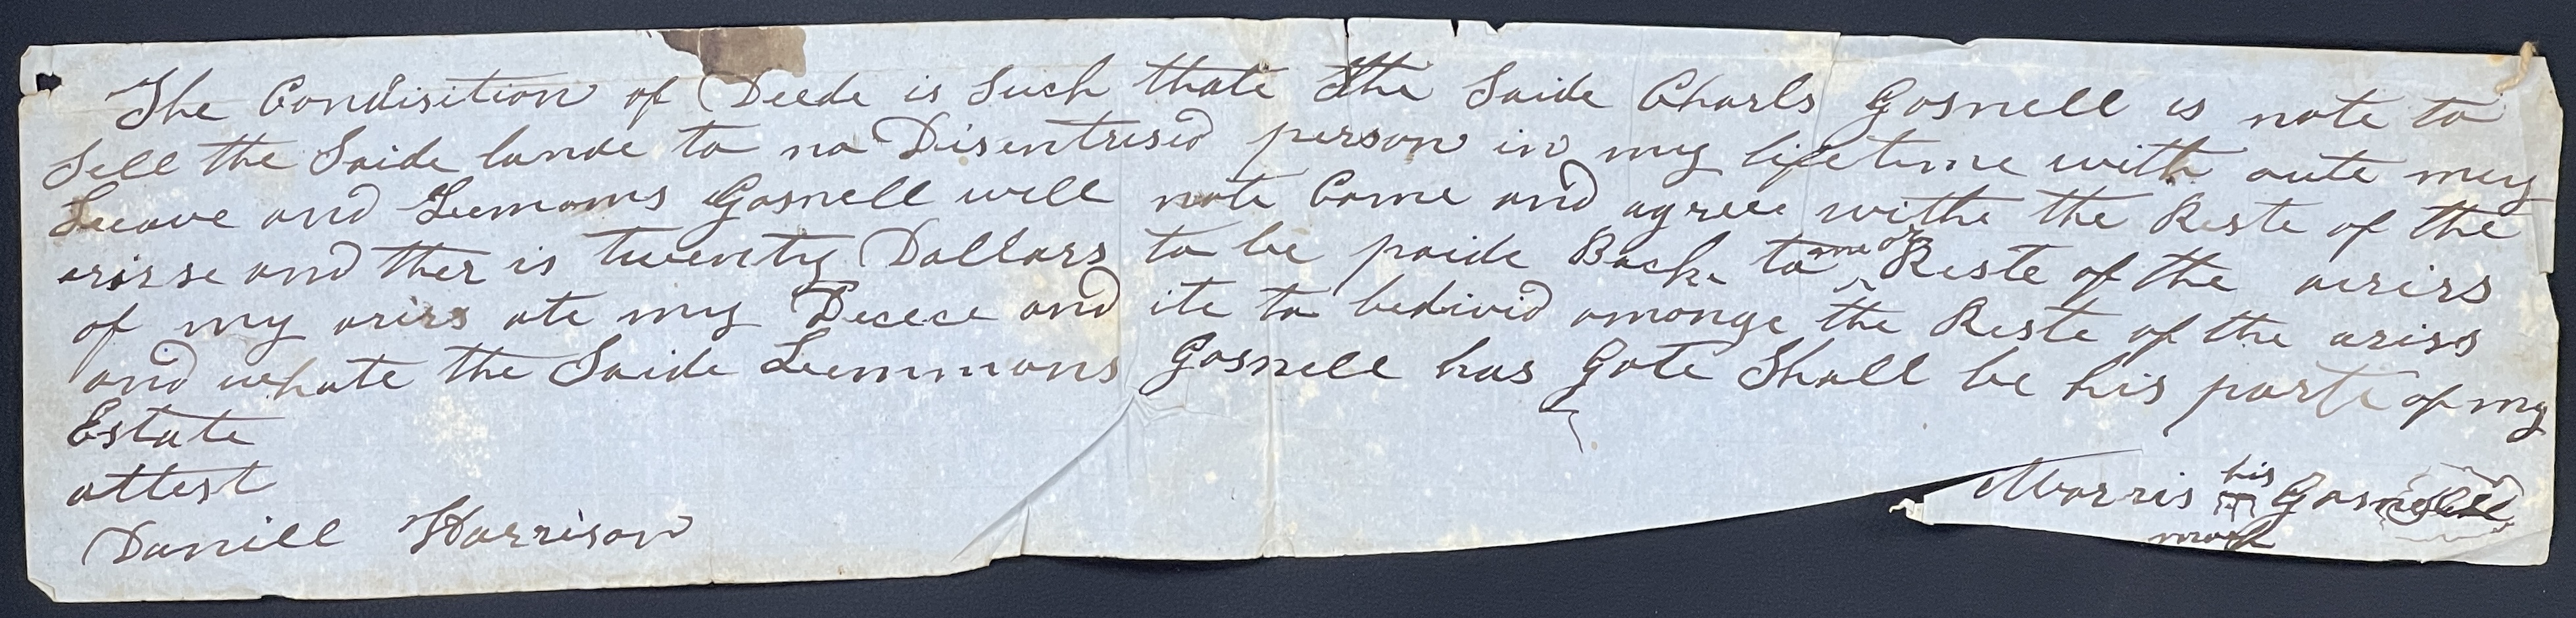 The Condisition of Deede is Such thate the Saide Charls Gosnell is note to
Sell the Saide lande to no Disentrised person in my lifetime with oute my
Leeave and Lemmoms Gosnell will note Come and agree withe the Reste of the
arirse and ther is twenty Dollars to be paide Back to one of Reste of the airirs
of my arirs ate my Decece and ite to bedivid amonge the Reste of the ariss
and whate the Saide Lemmons Gosnell has Gote Shall be his parte of my
Estate
attest
Daniell Harrison
Morris his Gosnell
mark